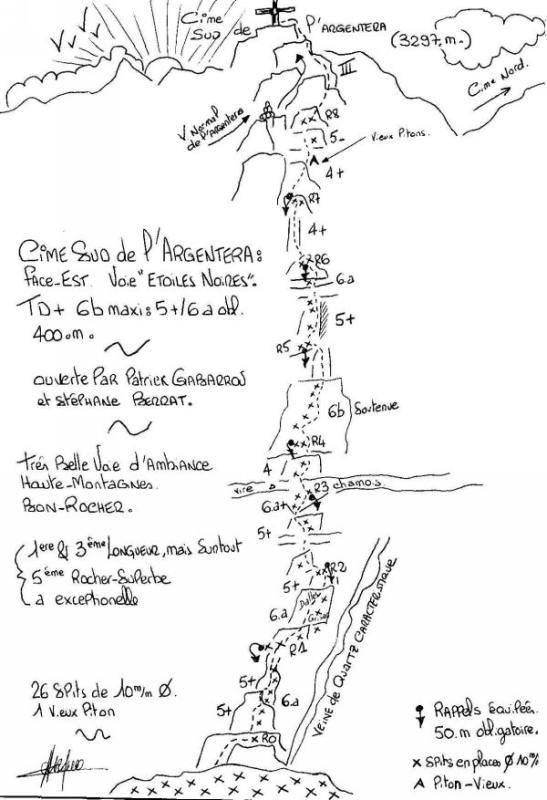 Cime
Sud de l'ARGENTERA
(3297.m.)
Cime Nord.
III
V. Normal
de l'Argentera
R8
5-
Vieux Pitons.
4+
R7
4+
R6
6.a
5+
R5
6b Soutenue
R4
4
vire à
R3 chamois
6.a+
5+
R2
5+
Dalles
Grises
6.a
R1
5+
6.a
5+
R0
VEINE DE QUARTZ CARACTERISTIQUE
CIME SUD de l'ARGENTERA:
FACE-EST. Voie "ETOILES NOIRES".
TD+ 6b maxi: 5+/6a obl.
400.m.
OUVERTE PAR PATRICK GABARROU
et STÉPHANE BERRAT.
très Belle Voie d'AMBIANCE
HAUTE-MONTAGNES.
BON-ROCHER.
1ere & 3ème LONGUEUR, mais SURTOUT
5ème ROCHER-SUPERBE
a exceptionelle
26 SPITS de 10m/m Ø.
1 Vieux Piton
RAPPELS équipées.
50.m obligatoire.
x SPITS en places Ø 10%
Piton-Vieux.